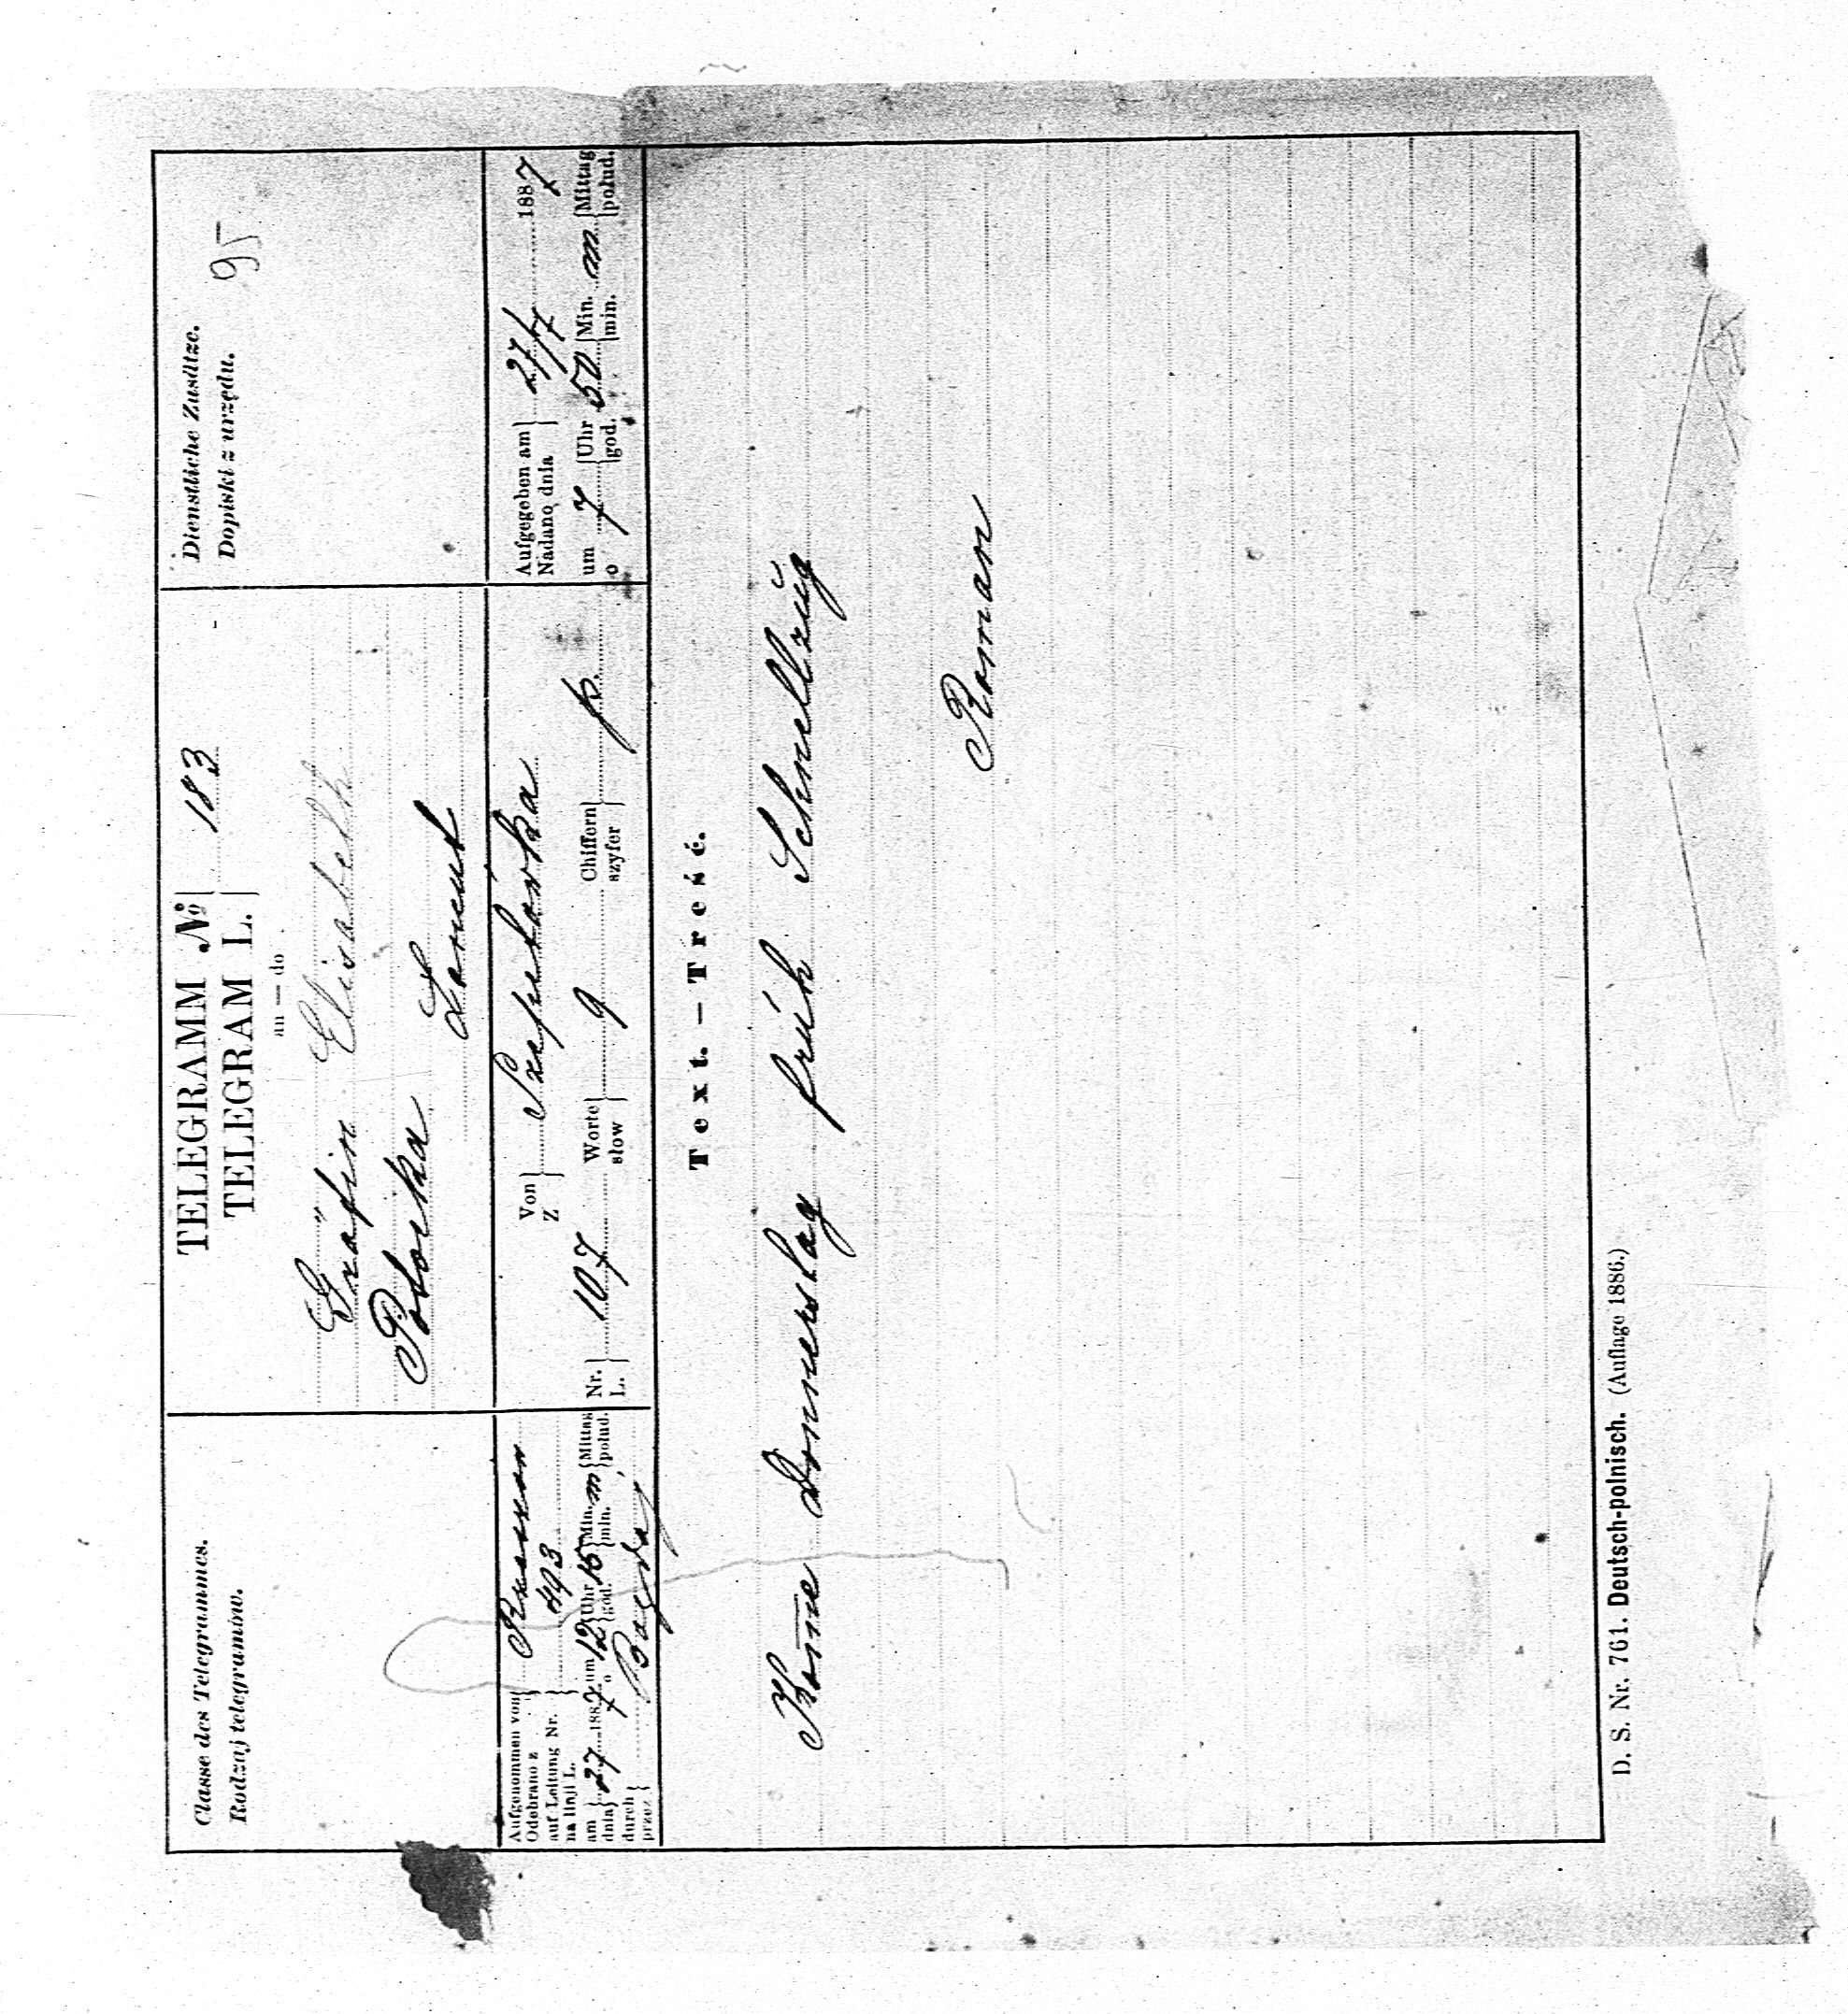 Classe des Telegrammes.
Rodzaj telegramów.
TELEGRAMM № 183
TELEGRAM L.
an — do
Gräfin Elisabeth
Potocka
Lancut
Dienstliche Zusätze.
Dopiski z urzędu.
95
Aufgenommen von
Odebrano z
auf Leitung Nr. 493
na linji L.
am 27/7 1887 um 12 Uhr 15 Min. m Mittag
dnia o god. min. połud.
durch
przez
Von
Z
Szepetówka
Nr. 107 Worte 9 Chiffern p.
L. słów szyfer
Aufgegeben am 27/7 1887
Nadano dnia
um 7 Uhr 50 Min. m Mittag
o god. min. połud.
Text. — Treść.
Kom̄e Donnerstag früh Schnellzug
Roman
D. S. Nr. 761. Deutsch-polnisch. (Auflage 1886.)